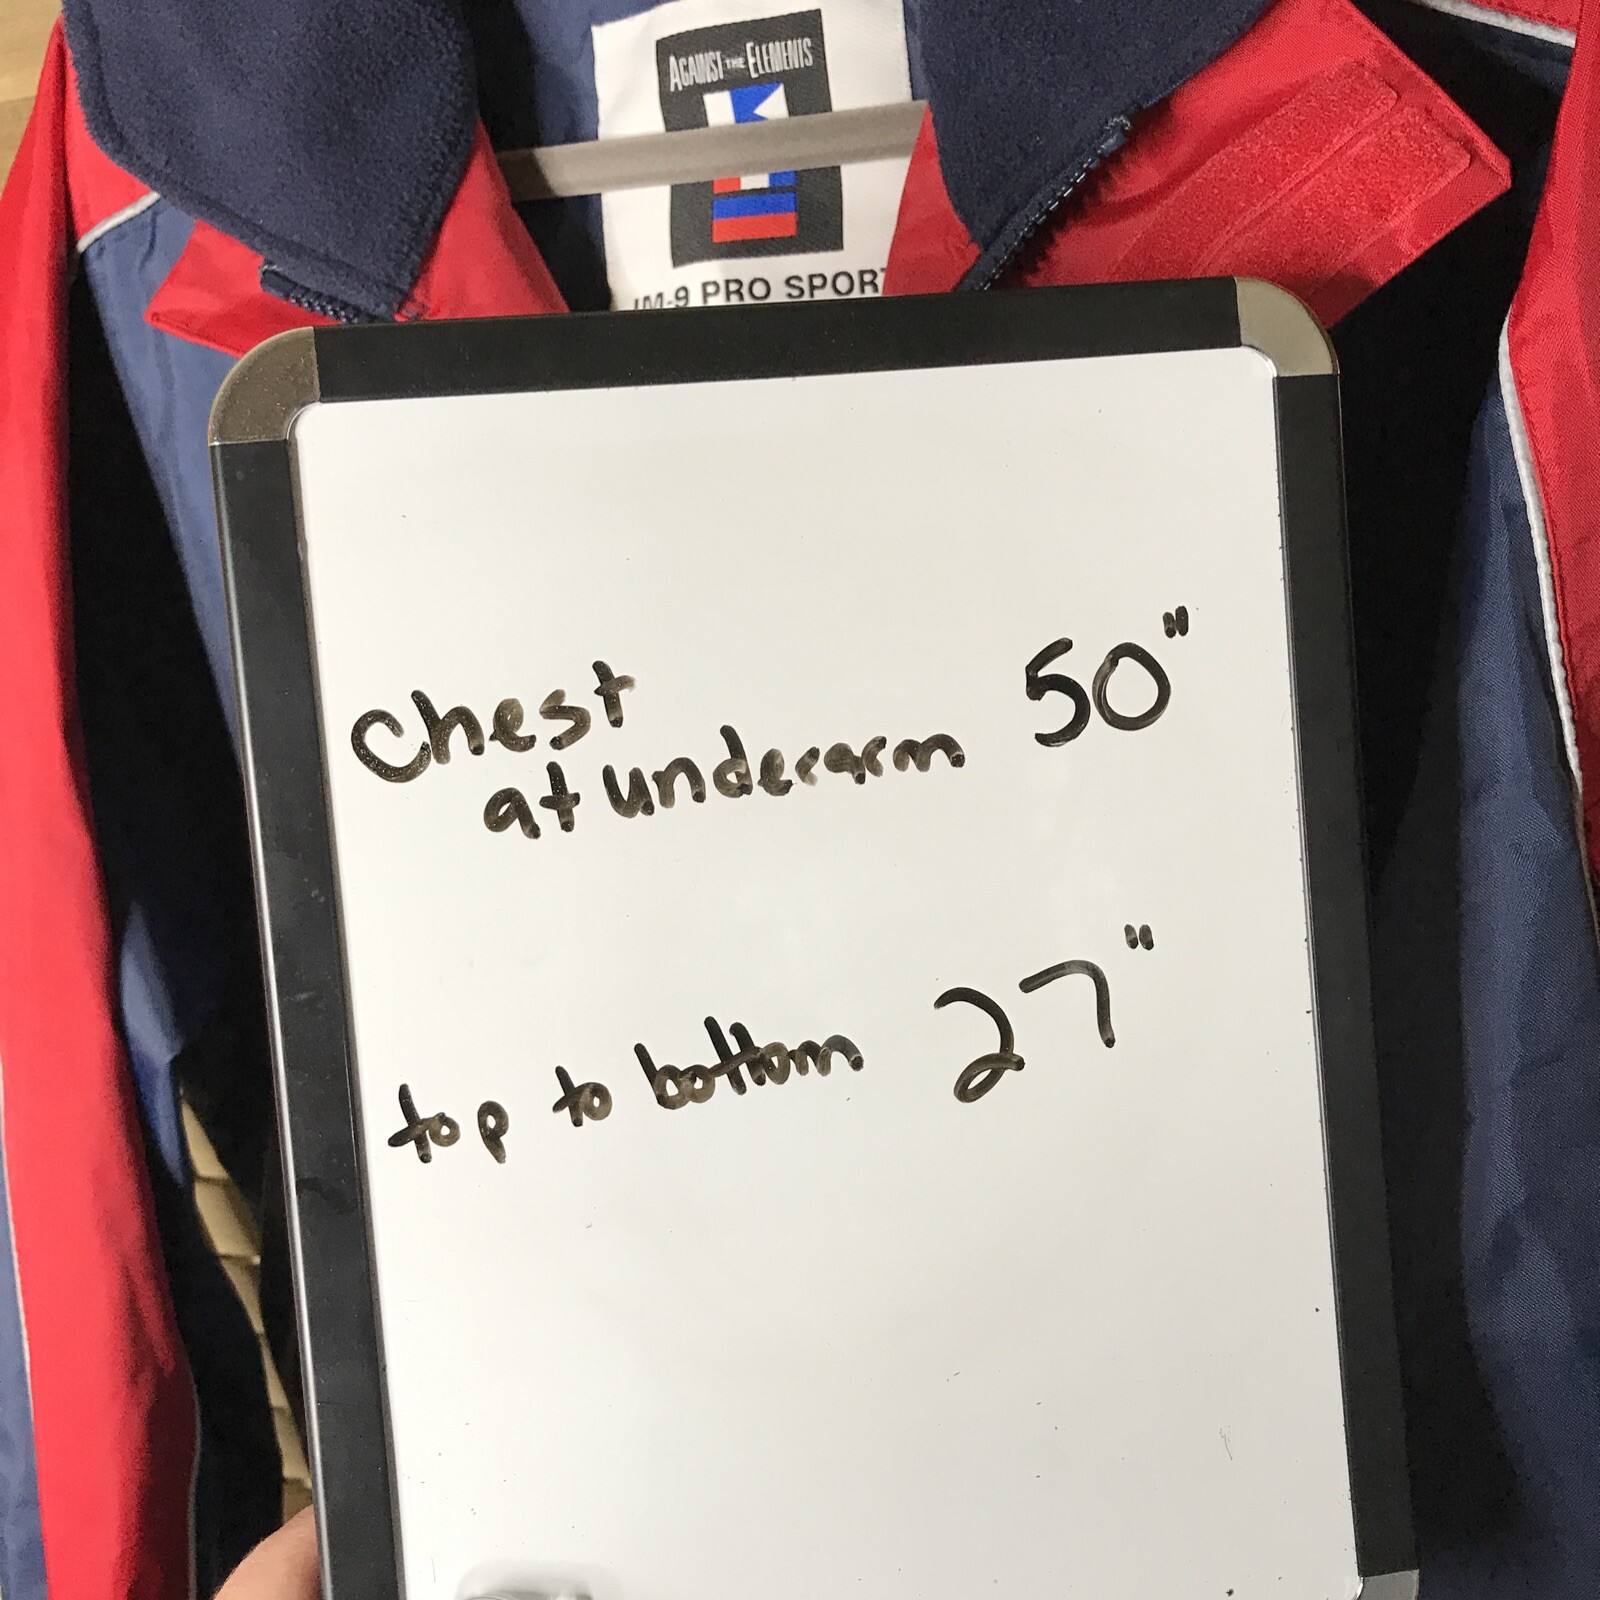 AGAINST THE ELEMENTS
PRO SPORT
chest 50"
at underarm
top to bottom 27"